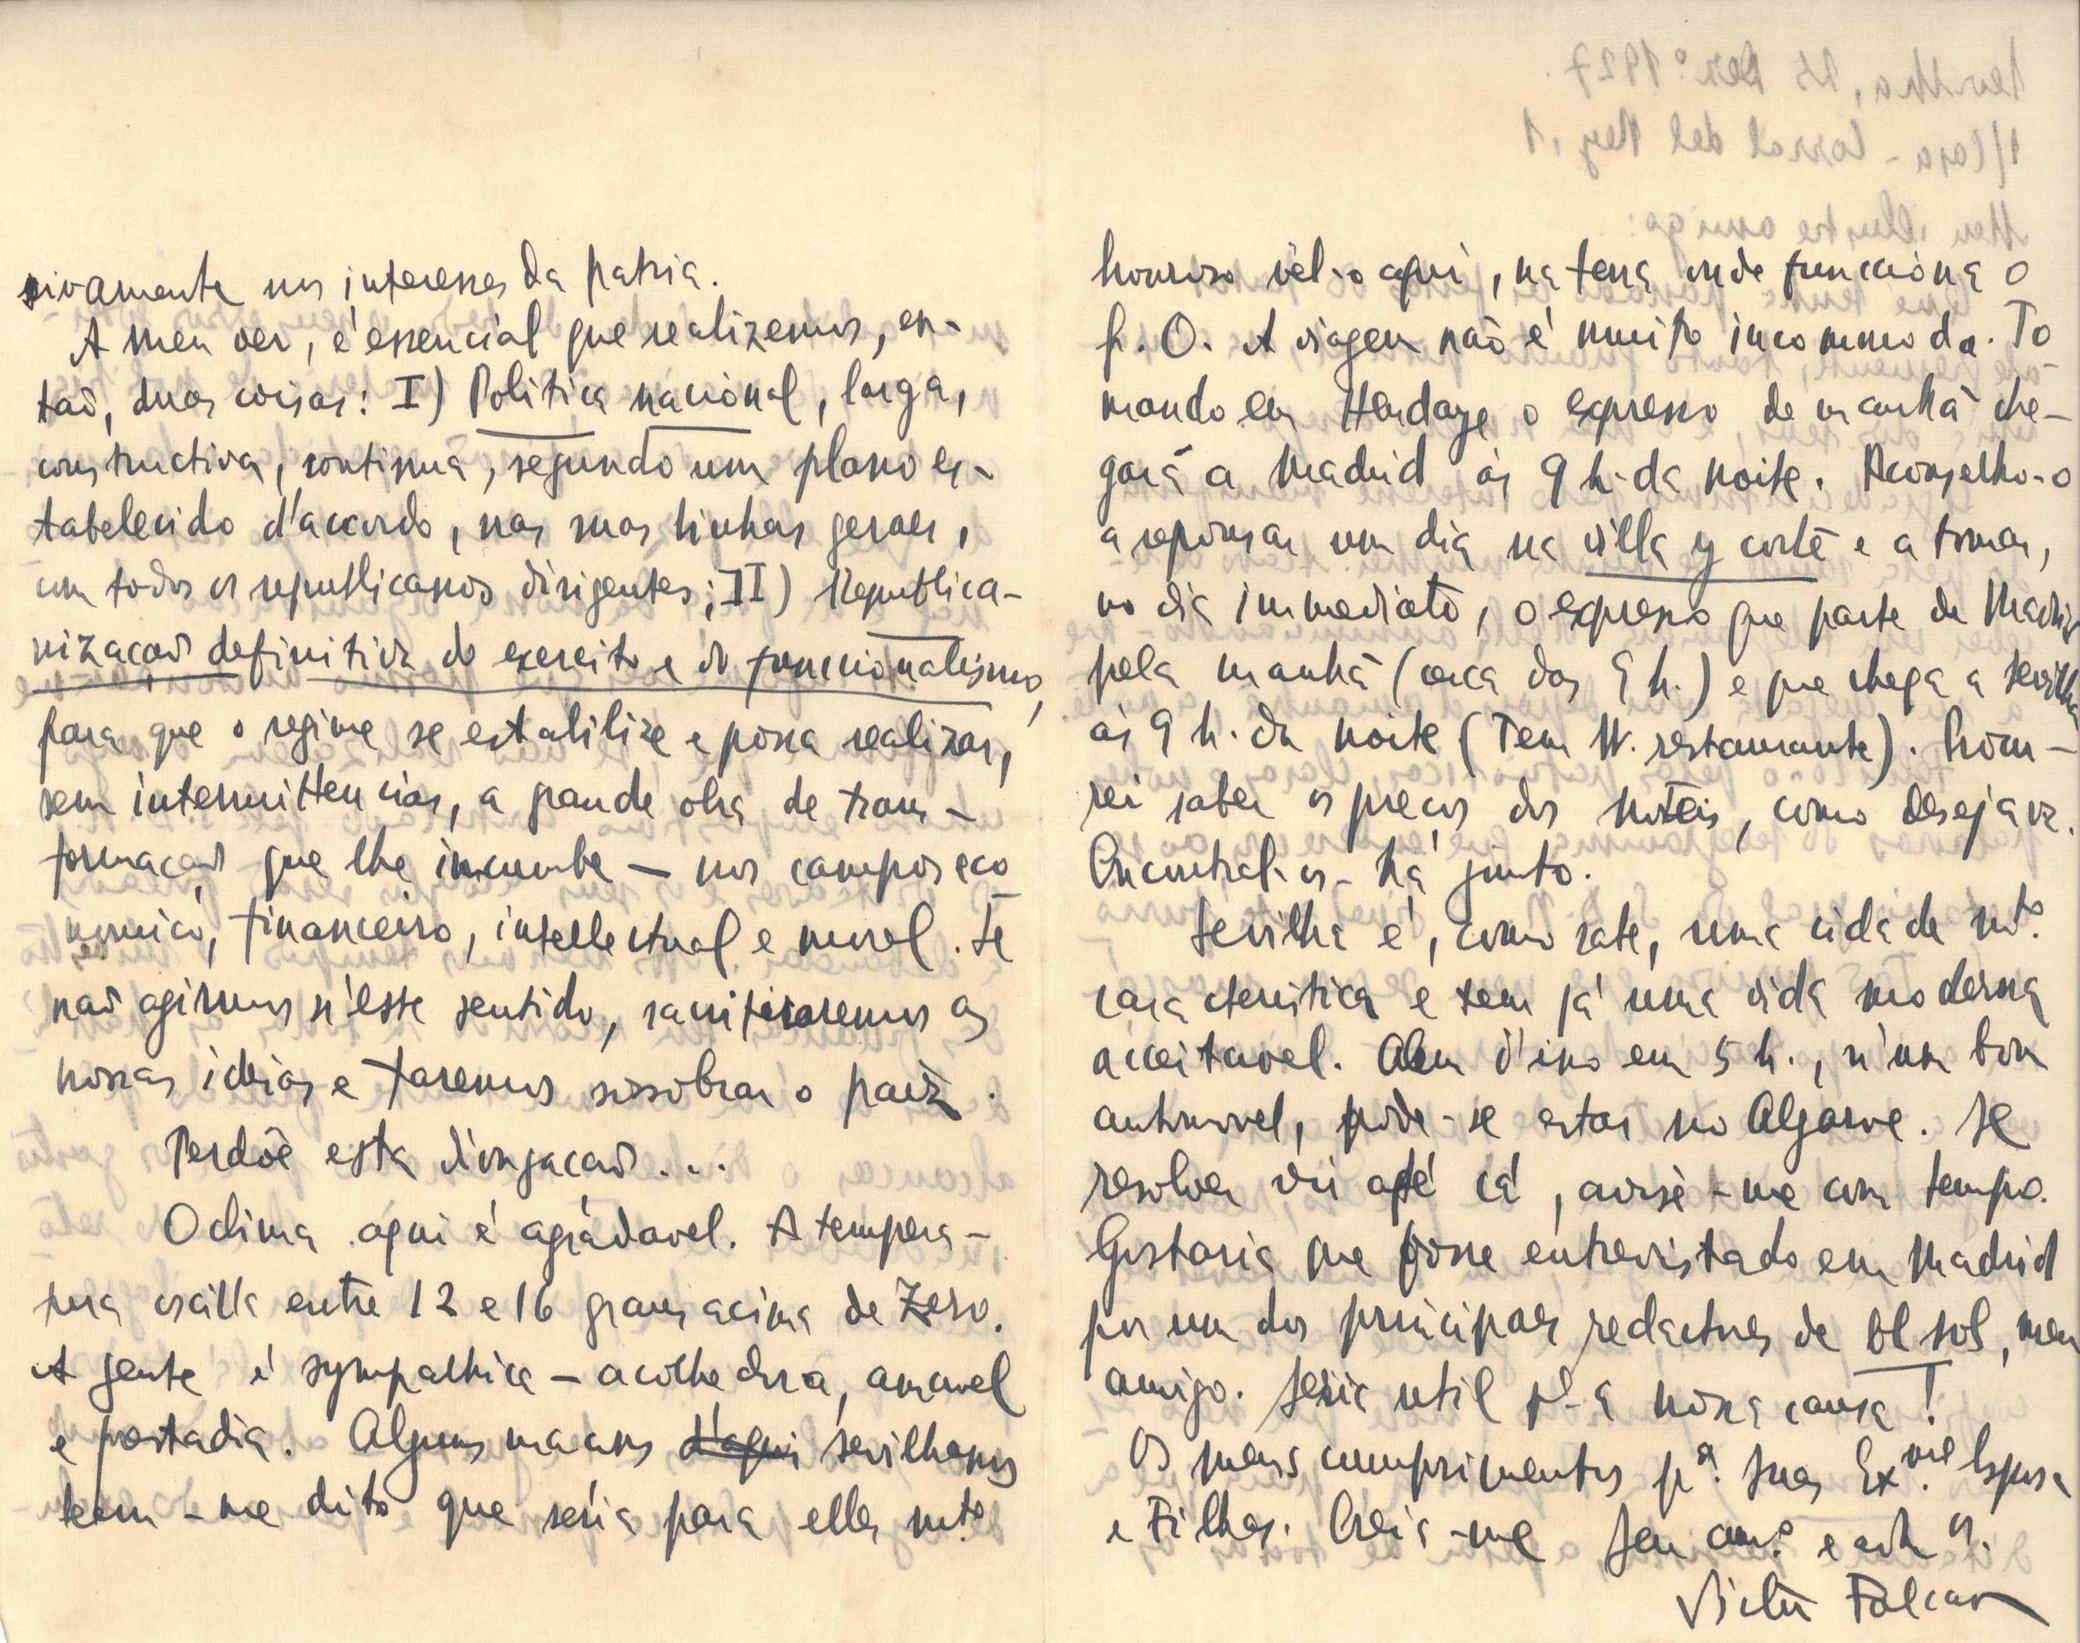 sivamente nos interesses da patria.
A meu ver, é essencial que realizemos, en-
tão, duas coisas: I) Politica nacional, larga,
constructiva, continua, segundo um plano es-
tabelecido d'accordo, nas suas linhas geraes,
com todos os republicanos dirigentes; II) Republica-
nização definitiva do exercito e do funccionalismo,
para que o regime se estabilize e possa realizar,
sem intermittencias, a grande obra de trans-
formação que lhe incumbe — nos campos eco
nomico, financeiro, intellectual e moral. Se
não agirmos n'este sentido, sacrificaremos as
nossas ideias e faremos sossobrar o paiz.
Perdôe esta divagação...
O clima aqui é agradavel. A tempera-
tura oscilla entre 12 e 16 graus acima de Zero.
A gente é sympathica — acolhedora, amavel
e
Alguns maçons d'aqui sevilhanos
teem-me dito que seria para elles mto
honroso vel-o aqui, na terra onde funcciona o
G. O. A viagem não é muito incommoda. To
mando em Hendaye o expresso da manhã che-
gará a Madrid ás 9 h. da noite. Aconselho-o
a repousar um dia na villa y corte e a tomar,
no dia immediato, o expresso que parte de Madrid
pela manhã (cerca das 9 h.) e que chega a Sevilha
ás 9 h. da noite (Tem W. restaurante).
saber os preços dos hoteis, como desejava.
Encontral-os-há junto.
Sevilha é, como sabe, uma cidade mto.
caracteristica e tem já uma vida moderna
acceitavel. Alem d'isso em 5 h., n'um bom
automovel, pode-se estar no Algarve. Se
resolver vir até cá, avise-me com tempo.
Gostaria que fosse entrevistado em Madrid
por um dos principaes redactores de El Sol, meu
amigo. Seria util pa a nossa causa!
Os meus cumprimentos pa. suas Exmas Esposa
e Filhas. Creia-me seu amo. e
Victor Falcão